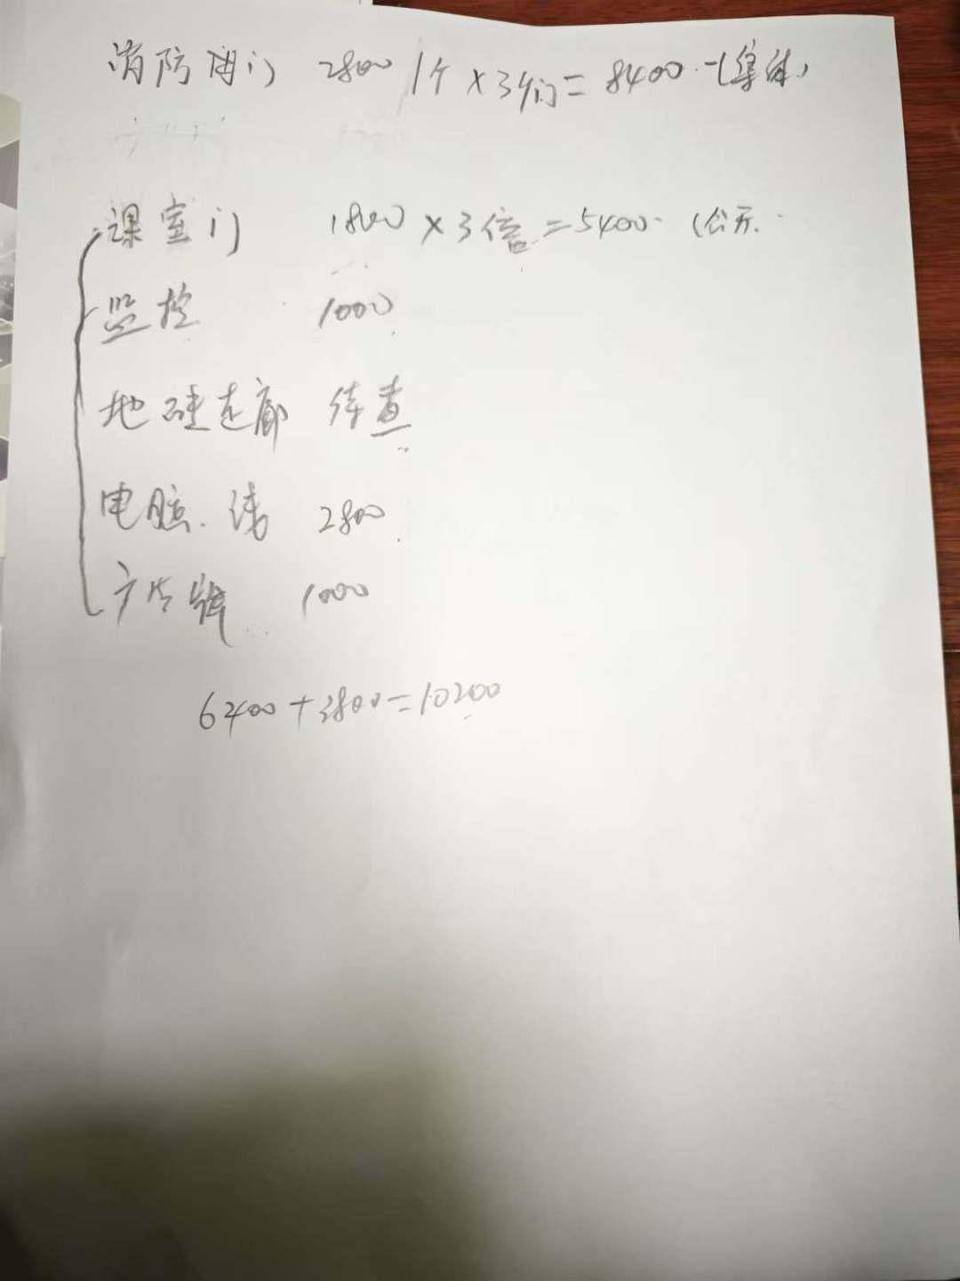 消防闸门 2800 1个 ×3个门=8400.(集体)
课室门 1800×3倍=5400.(公开.
监控 1000
地砖走廊 待查
电脑.线 2800
1000
6400+3800=10200